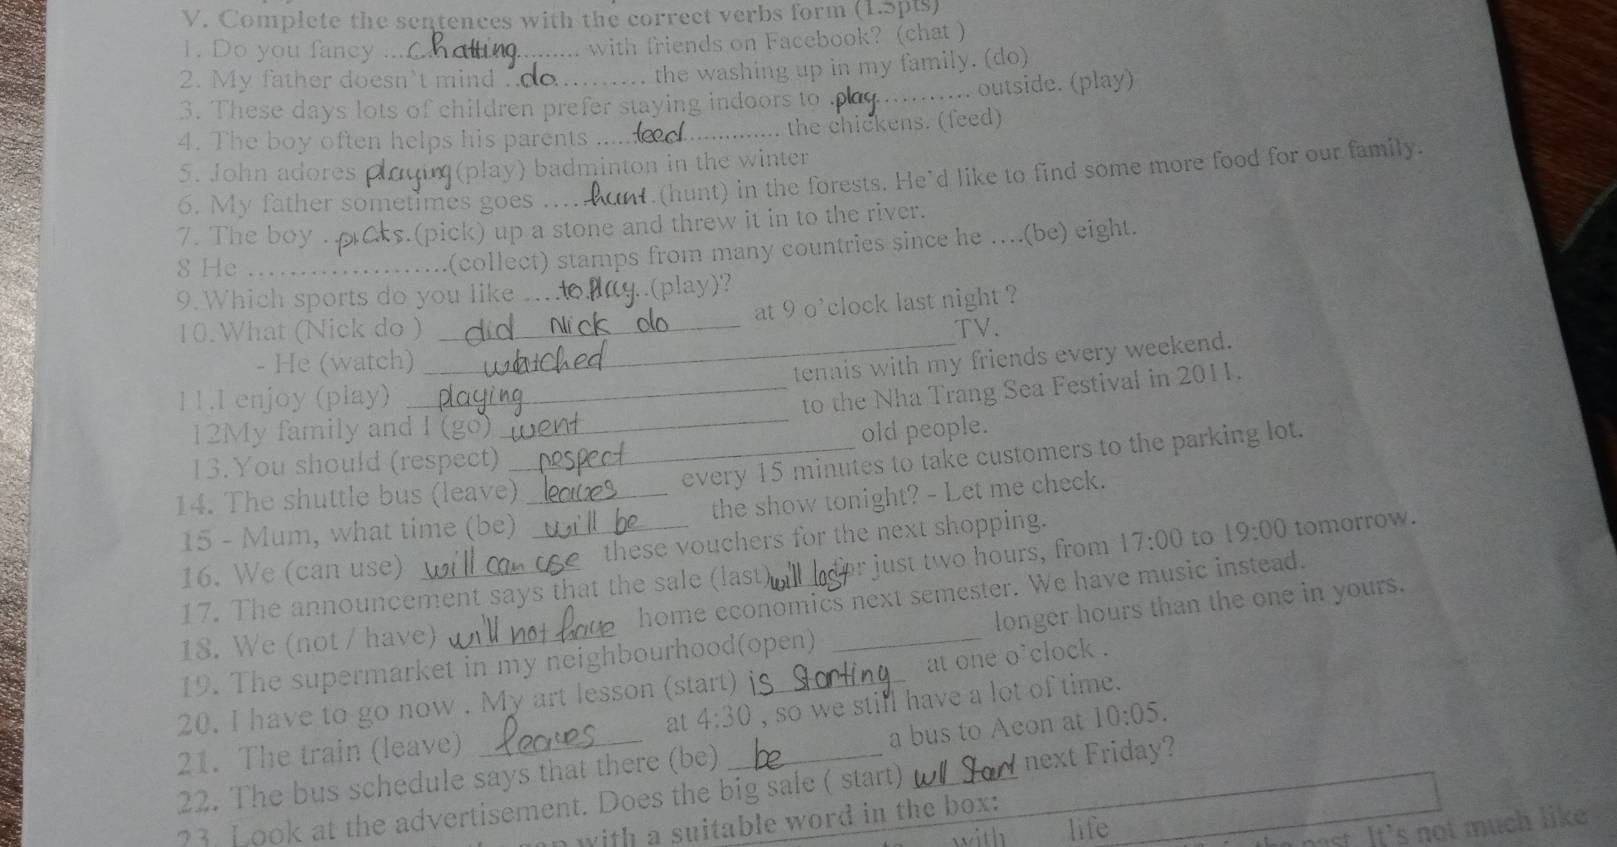 V. Complete the sentences with the correct verbs form (1.5pts)
1. Do you fancy ...chatting.......... with friends on Facebook? (chat )
2. My father doesn't mind ..do........... the washing up in my family. (do)
3. These days lots of children prefer staying indoors to .play............ outside. (play)
4. The boy often helps his parents ......feed............... the chickens. (feed)
5. John adores playing(play) badminton in the winter
6. My father sometimes goes ....hunt.(hunt) in the forests. He'd like to find some more food for our family.
7. The boy ..picks.(pick) up a stone and threw it in to the river.
8 He .......................(collect) stamps from many countries since he ....(be) eight.
9.Which sports do you like ....to play..(play)?
10.What (Nick do ) did Nick do at 9 o'clock last night ?
- He (watch) watched TV.
11.I enjoy (play) playing tennis with my friends every weekend.
12My family and I (go) went to the Nha Trang Sea Festival in 2011.
13.You should (respect) respect old people.
14. The shuttle bus (leave) leaves every 15 minutes to take customers to the parking lot.
15 - Mum, what time (be) will be the show tonight? - Let me check.
16. We (can use) will can use these vouchers for the next shopping.
17. The announcement says that the sale (last) will last for just two hours, from 17:00 to 19:00 tomorrow.
18. We (not / have) will not have home economics next semester. We have music instead.
19. The supermarket in my neighbourhood(open) ________ longer hours than the one in yours.
20. I have to go now . My art lesson (start) is starting at one o'clock .
21. The train (leave) leaves at 4:30 , so we still have a lot of time.
22. The bus schedule says that there (be) be a bus to Aeon at 10:05.
23. Look at the advertisement. Does the big sale ( start) will start next Friday?
with a suitable word in the box:
with life
past. It's not much like